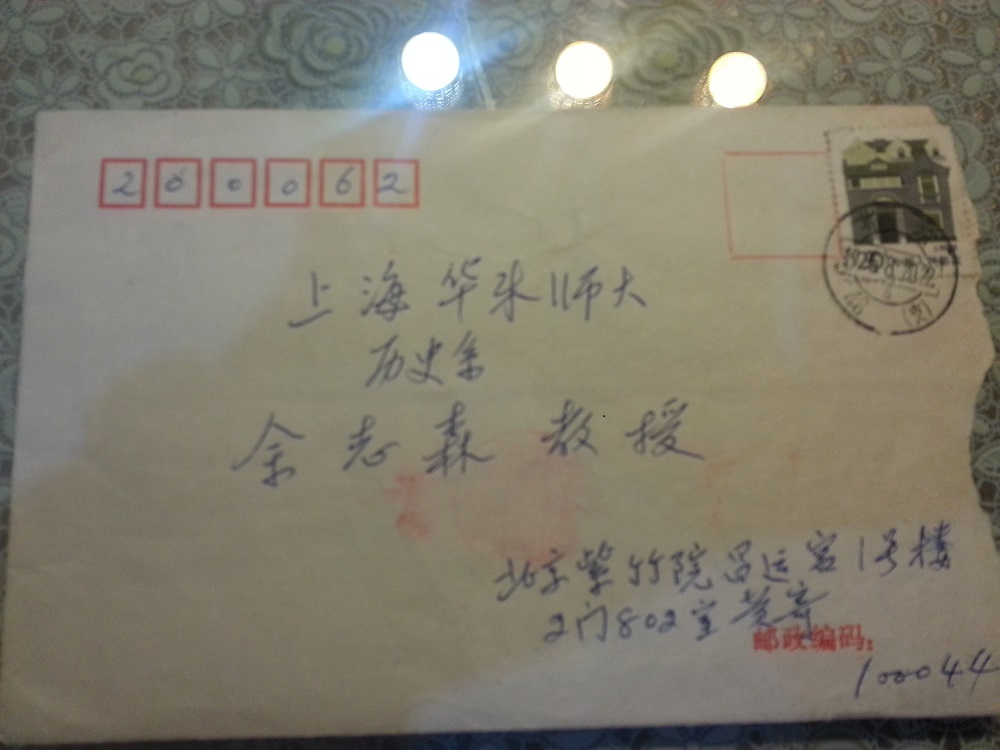 200062
上海华东师大
历史系
余志森教授
北京紫竹院昌运宫1号楼
2门802室黄寄
邮政编码：
100044